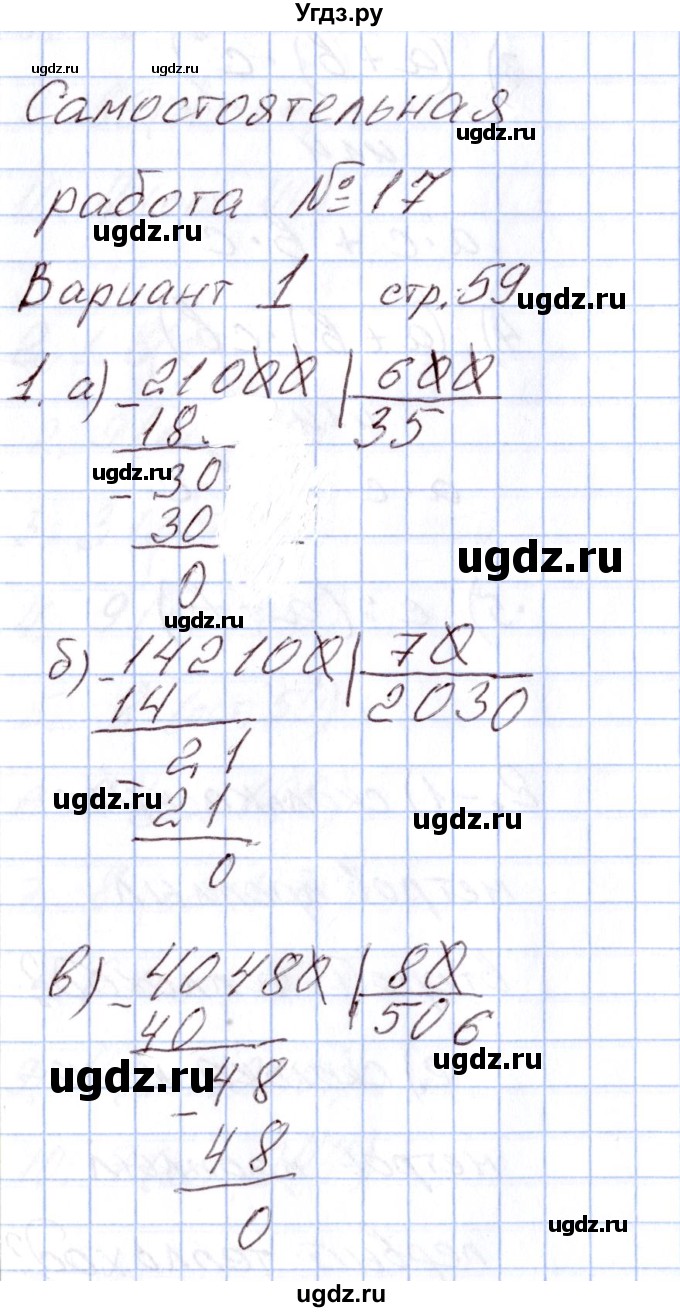 Угдз.ру
ugdz.ru ugdz.ru
Самостоятельная
ugdz.ru
работа № 17
ugdz.ru
Вариант 1 стр. 59
ugdz.ru
1. а) - 21000 | 600
18 35
ugdz.ru
- 30
30
ugdz.ru
0
ugdz.ru
б) - 142100 | 70
14 2030
21
ugdz.ru
- 21
ugdz.ru
0
в) - 40480 | 80
40 506
ugdz.ru
ugdz.ru
- 48
48
0
ugdz.ru
ugdz.ru